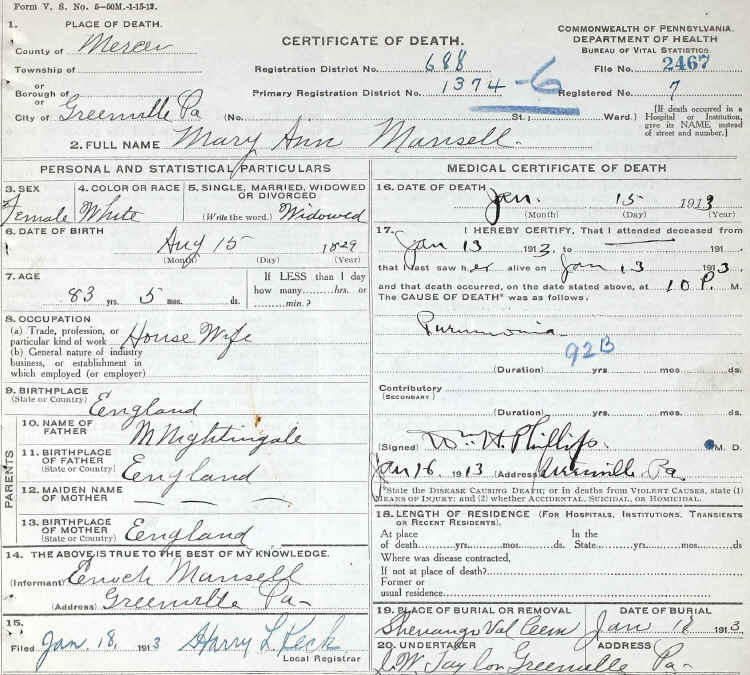 Form V. S. No. 5—50M.-1-15-12.
1. PLACE OF DEATH.
County of Mercer
Township of
or
Borough of
or
City of Greenville Pa
CERTIFICATE OF DEATH.
Registration District No. 688
Primary Registration District No. 1374-6
(No. St.; Ward.)
COMMONWEALTH OF PENNSYLVANIA.
DEPARTMENT OF HEALTH
BUREAU OF VITAL STATISTICS.
File No. 2467
Registered No. 7
[If death occurred in a
Hospital or Institution,
give its NAME instead
of street and number.]
2. FULL NAME Mary Ann Mansell.
PERSONAL AND STATISTICAL PARTICULARS
3. SEX
Female
4. COLOR OR RACE
White
5. SINGLE, MARRIED, WIDOWED
OR DIVORCED
(Write the word.) Widowed
6. DATE OF BIRTH
Aug 15 1829
(Month) (Day) (Year)
7. AGE
83 yrs. 5 mos. ds.
If LESS than 1 day
how many hrs. or
min.?
8. OCCUPATION
(a) Trade, profession, or
particular kind of work House Wife
(b) General nature of industry
business, or establishment in
which employed (or employer)
9. BIRTHPLACE
(State or Country) England
PARENTS
10. NAME OF
FATHER M Nightingale
11. BIRTHPLACE
OF FATHER
(State or Country) England
12. MAIDEN NAME
OF MOTHER — — —
13. BIRTHPLACE
OF MOTHER
(State or Country) England
14. THE ABOVE IS TRUE TO THE BEST OF MY KNOWLEDGE.
(Informant) Enoch Mansell
(Address) Greenville Pa-
15.
Filed Jan. 18, 1913 Harry L. Keck
Local Registrar
MEDICAL CERTIFICATE OF DEATH
16. DATE OF DEATH
Jan. 15 1913
(Month) (Day) (Year)
17. I HEREBY CERTIFY, That I attended deceased from
Jan 13 1913, to — 191
that I last saw her alive on Jan 13 1913.
and that death occurred, on the date stated above, at 10 P. M.
The CAUSE OF DEATH* was as follows:
Pneumonia
92B
(Duration) yrs. mos. ds.
Contributory
(SECONDARY)
(Duration) yrs. mos. ds.
(Signed) Wm H. Phillips M. D.
Jan 16 1913 (Address) Greenville Pa
*State the DISEASE CAUSING DEATH; or in deaths from VIOLENT CAUSES, state (1)
MEANS OF INJURY; and (2) whether ACCIDENTAL, SUICIDAL, OR HOMICIDAL.
18. LENGTH OF RESIDENCE (FOR HOSPITALS, INSTITUTIONS, TRANSIENTS
OR RECENT RESIDENTS).
At place
of death yrs. mos. ds.
In the
State yrs. mos. ds
Where was disease contracted,
If not at place of death?
Former or
usual residence
19. PLACE OF BURIAL OR REMOVAL
Shenango Val Cem
DATE OF BURIAL
Jan 18 1913
20. UNDERTAKER
W. Taylor
ADDRESS
Greenville Pa-